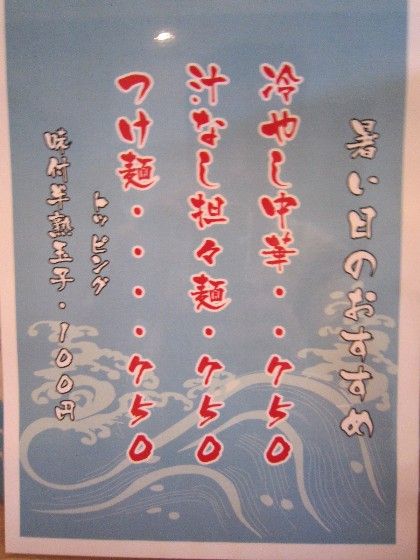 暑い日のおすすめ
冷やし中華・・750
汁なし担々麺・750
つけ麺・・・・・750
トッピング
味付半熟玉子・100円